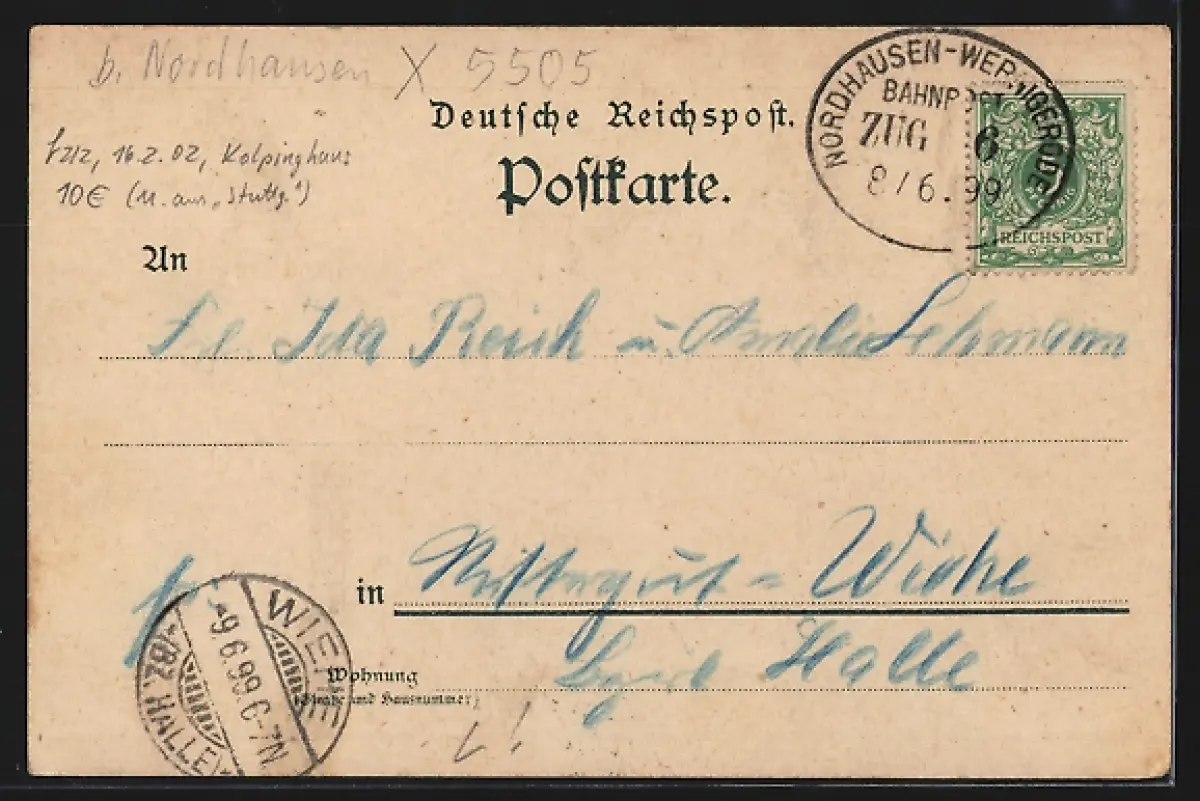 b. Nordhausen X 5505
Deutsche Reichspost.
Postkarte.
NORDHAUSEN-WERNIGERODE
BAHNPOST
ZUG 6
8/6.99
REICHSPOST
16.2.02, Kolpinghaus
10€ (u. aus „Stuttg.")
An
Frl. Ida Reich u. Amalie Lehmann
in Rittergut - Wiehe
Bezirk Halle
Wohnung
(Straße und Hausnummer)
WIEHE
-9.6.99.6-7N.
(BZ. HALLE)